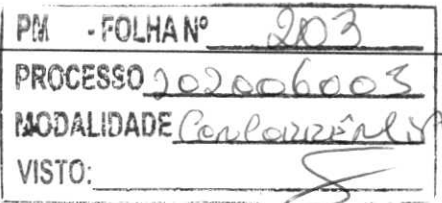 PM - FOLHA Nº 203
PROCESSO 202006003
MODALIDADE Concorrência
VISTO: